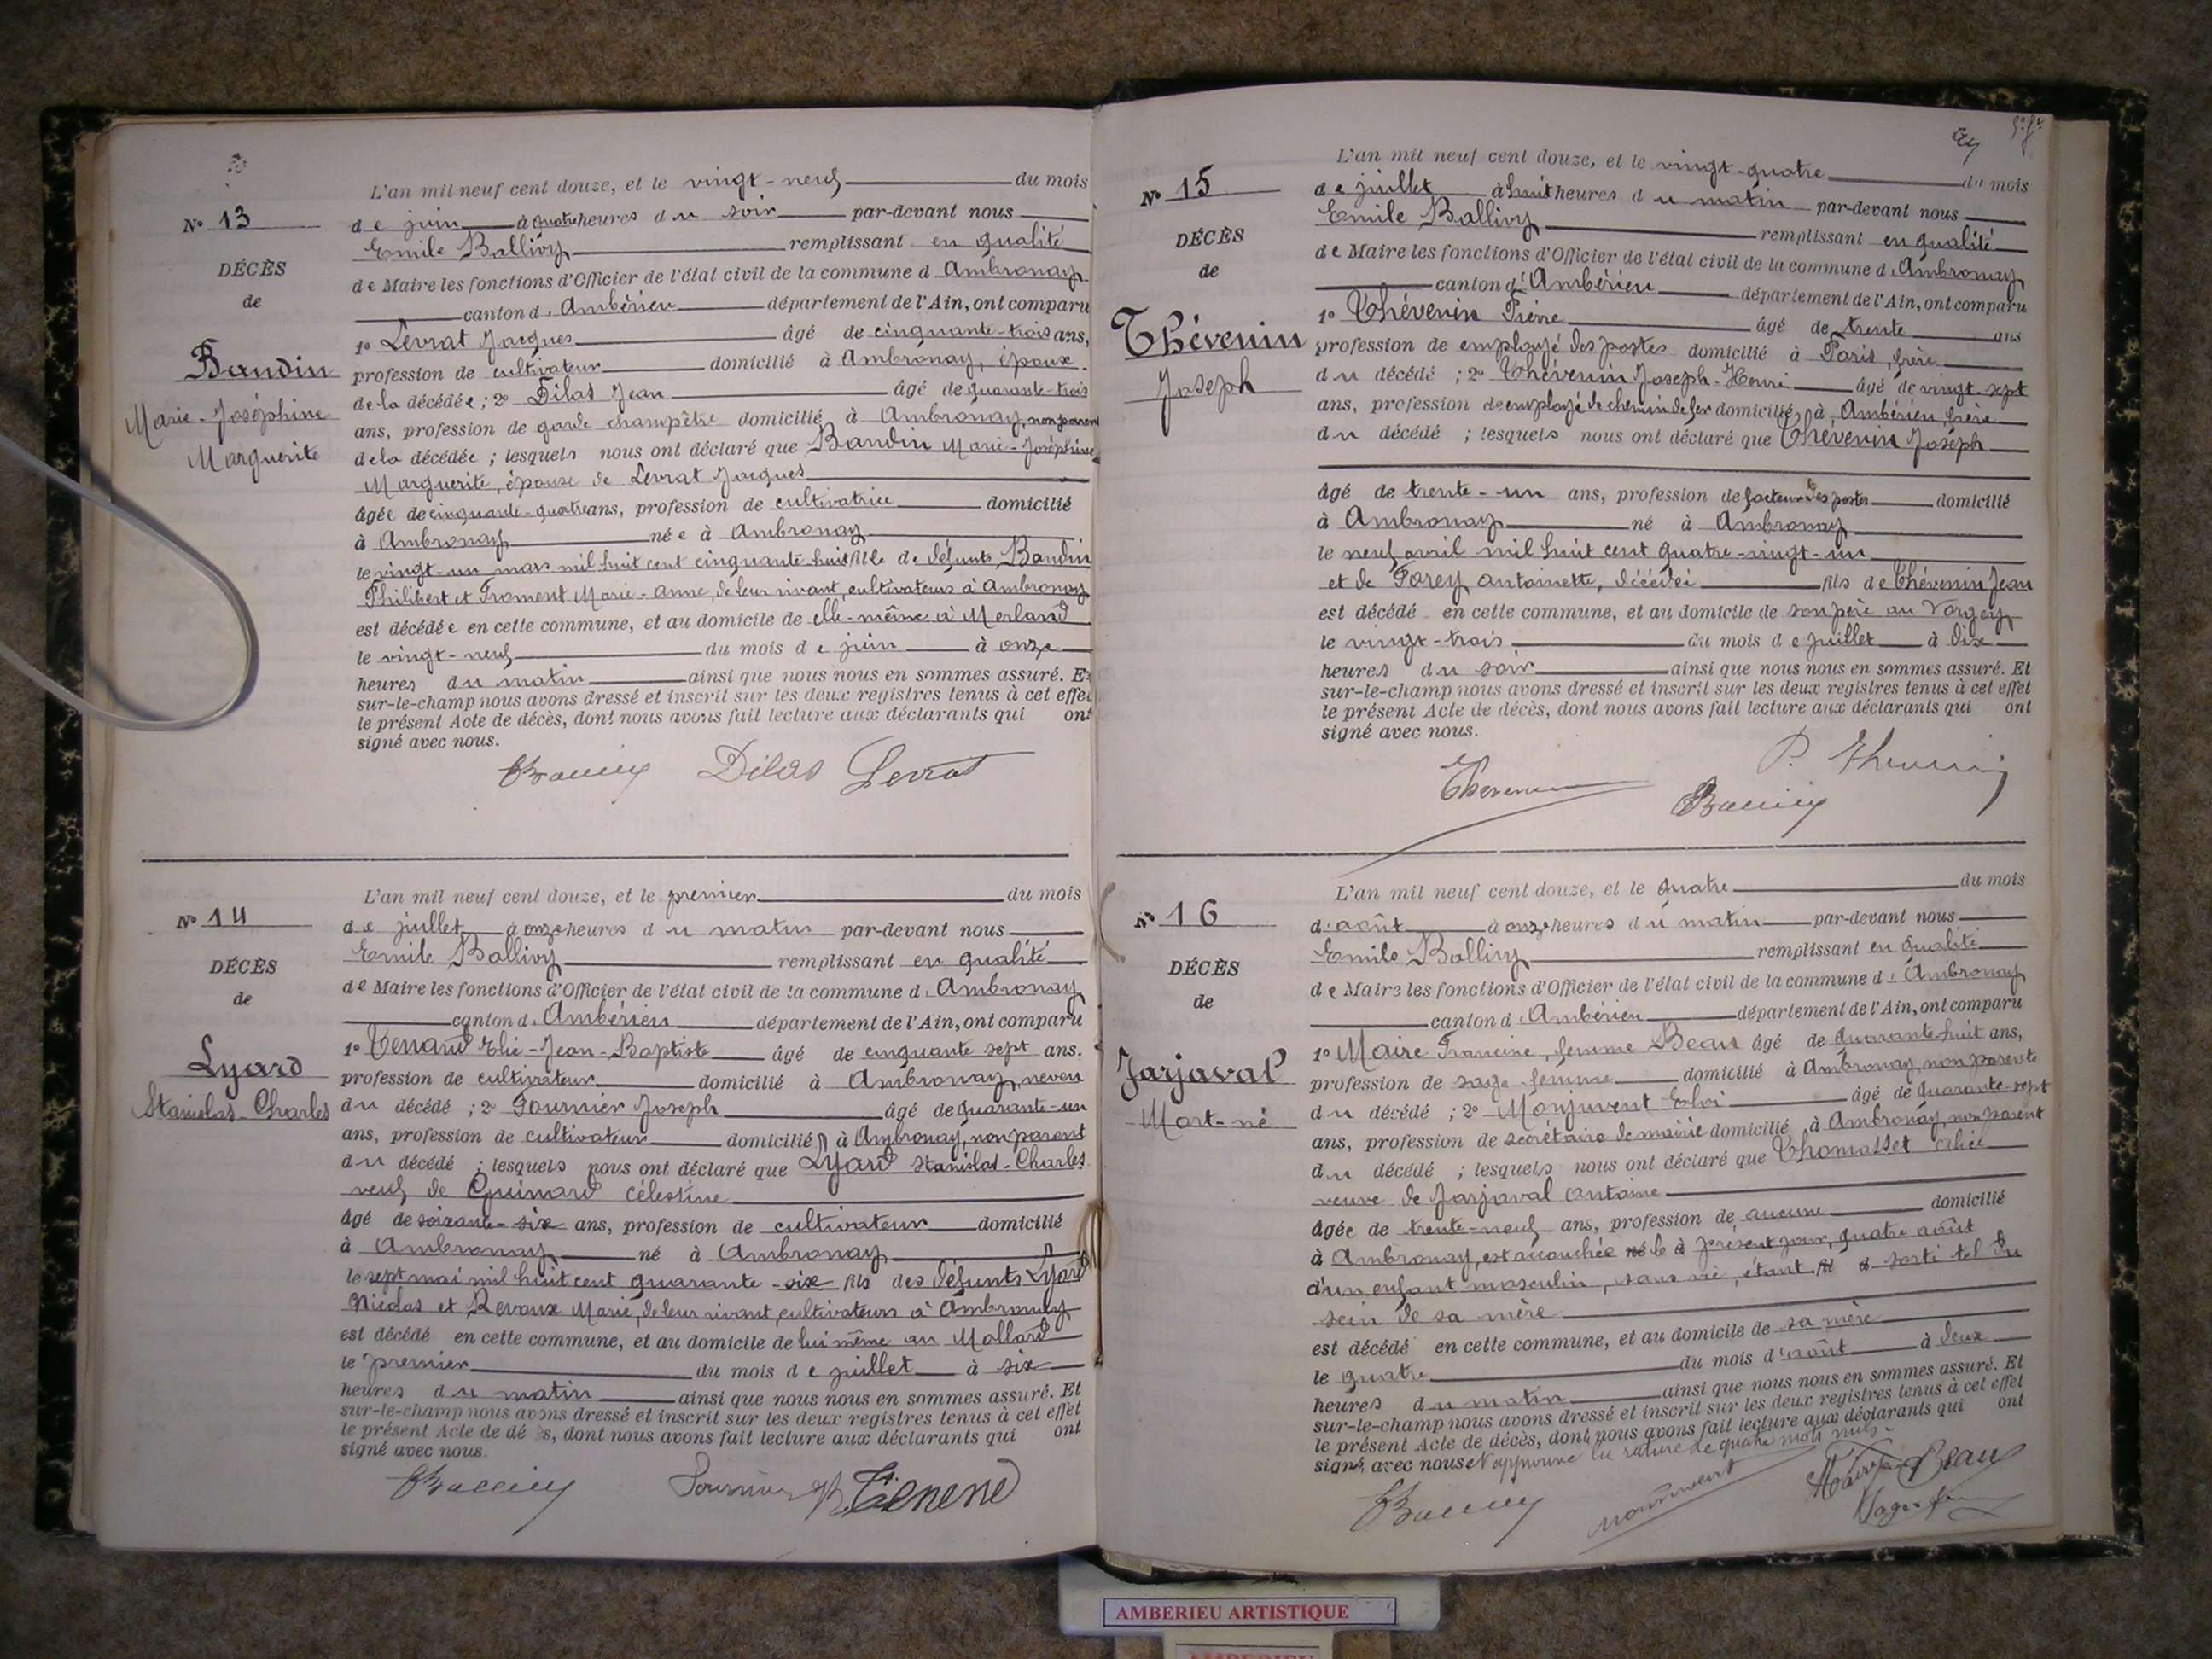 L'an mil neuf cent douze, et le vingt-neuf du mois
N° 13
de juin à quatre heures du soir par-devant nous
Emile Ballivy remplissant en qualité
DÉCÈS
de Maire les fonctions d'Officier de l'état civil de la commune d'Ambronay
de
canton d'Ambérieu département de l'Ain, ont comparu
1° Levrat Jacques âgé de cinquante-trois ans,
Baudin
profession de cultivateur domicilié à Ambronay, époux
de la décédée ; 2° Dilas Jean âgé de quarante-trois
Marie-Joséphine
ans, profession de garde champêtre domicilié à Ambronay, non parent
Marguerite
de la décédée ; lesquels nous ont déclaré que Baudin Marie-Joséphine
Marguerite, épouse de Levrat Jacques
âgée de cinquante-quatre ans, profession de cultivatrice domicilié
à Ambronay née à Ambronay
le vingt-un mars mil huit cent cinquante-huit fille de défunts Baudin
Philibert et Froment Marie-Anne, de leur vivant, cultivateurs à Ambronay
est décédée en cette commune, et au domicile de elle-même à Merland
le vingt-neuf du mois de juin à onze
heures du matin ainsi que nous nous en sommes assuré. Et
sur-le-champ nous avons dressé et inscrit sur les deux registres tenus à cet effet
le présent Acte de décès, dont nous avons fait lecture aux déclarants qui ont
signé avec nous.
Ballivy Dilas Levrat
L'an mil neuf cent douze, et le premier du mois
N° 14
de juillet à onze heures du matin par-devant nous
Emile Ballivy remplissant en qualité
DÉCÈS
de Maire les fonctions d'Officier de l'état civil de la commune d'Ambronay
de
canton d'Ambérieu département de l'Ain, ont comparu
1° Tenand Elie-Jean-Baptiste âgé de cinquante sept ans.
Lyard
profession de cultivateur domicilié à Ambronay, neveu
Stanislas-Charles
du décédé ; 2° Fournier Joseph âgé de quarante-un
ans, profession de cultivateur domicilié à Ambronay, non parent
du décédé ; lesquels nous ont déclaré que Lyard Stanislas-Charles
veuf de Guinard Célestine
âgé de soixante-six ans, profession de cultivateur domicilié
à Ambronay né à Ambronay
le sept mai mil huit cent quarante-six fils des défunts Lyard
Nicolas et Revoux Marie, de leur vivant, cultivateurs à Ambronay
est décédé en cette commune, et au domicile de lui même au Mollard
le premier du mois de juillet à six
heures du matin ainsi que nous nous en sommes assuré. Et
sur-le-champ nous avons dressé et inscrit sur les deux registres tenus à cet effet
le présent Acte de dé s, dont nous avons fait lecture aux déclarants qui ont
signé avec nous.
Ballivy Fournier Tenend
L'an mil neuf cent douze, et le vingt-quatre du mois
N° 15
de juillet à huit heures du matin par-devant nous
Emile Ballivy remplissant en qualité
DÉCÈS
de Maire les fonctions d'Officier de l'état civil de la commune d'Ambronay
de
canton d'Ambérieu département de l'Ain, ont comparu
1° Thévenin Pierre âgé de trente ans
Thévenin
profession de employé des postes domicilié à Paris, frère
Joseph
du décédé ; 2° Thévenin Joseph-Henri âgé de vingt-sept
ans, profession de employé de chemin de fer domicilié à Ambérieu, frère
du décédé ; lesquels nous ont déclaré que Thévenin Joseph
âgé de trente-un ans, profession de facteur des postes domicilié
à Ambronay né à Ambronay
le neuf avril mil huit cent quatre-vingt-un
et de Forey Antoinette, décédée fils de Thévenin Jean
est décédé en cette commune, et au domicile de son père au Vorgey
le vingt-trois du mois de juillet à dix
heures du soir ainsi que nous nous en sommes assuré. Et
sur-le-champ nous avons dressé et inscrit sur les deux registres tenus à cet effet
le présent Acte de décès, dont nous avons fait lecture aux déclarants qui ont
signé avec nous.
Thevenin P. Thevenin
Ballivy
L'an mil neuf cent douze, et le quatre du mois
N° 16
d'août à onze heures du matin par-devant nous
Emile Ballivy remplissant en qualité
DÉCÈS
de Maire les fonctions d'Officier de l'état civil de la commune d'Ambronay
de
canton d'Ambérieu département de l'Ain, ont comparu
1° Maire Francine, femme Beau âgé de quarante-huit ans,
Jarjaval
profession de sage-femme domicilié à Ambronay, non parente
Mort-né
du décédé ; 2° Monjuvent Eloi âgé de quarante-sept
ans, profession de secrétaire de mairie domicilié à Ambronay, non parent
du décédé ; lesquels nous ont déclaré que Thomasset
veuve de Jarjaval Antoine
âgée de trente-neuf ans, profession de aucune domicilié
à Ambronay, est accouchée né le à présent jour, quatre août
d'un enfant masculin, sans vie, étant sorti tel du
sein de sa mère
est décédé en cette commune, et au domicile de sa mère
le quatre du mois d'août à deux
heures du matin ainsi que nous nous en sommes assuré. Et
sur-le-champ nous avons dressé et inscrit sur les deux registres tenus à cet effet
le présent Acte de décès, dont nous avons fait lecture aux déclarants qui ont
signé avec nous et approuvé la rature de quatre mots nuls.
Ballivy Monjuvent Maire Beau
Sage-fem
AMBERIEU ARTISTIQUE
AMBERIEU